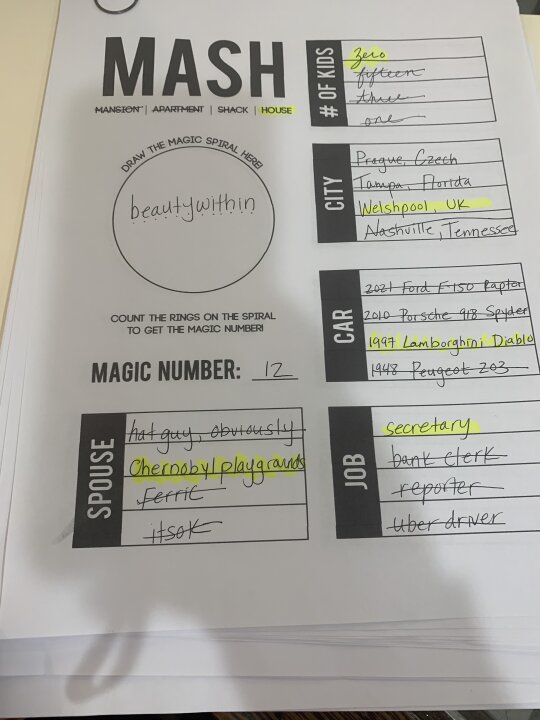 MASH
MANSION | APARTMENT | SHACK | HOUSE
DRAW THE MAGIC SPIRAL HERE!
beautywithin
COUNT THE RINGS ON THE SPIRAL
TO GET THE MAGIC NUMBER!
MAGIC NUMBER: 12
# OF KIDS
zero
fifteen
three
one
CITY
Prague, Czech
Tampa, Florida
Welshpool, UK
Nashville, Tennessee
CAR
2021 Ford F-150 Raptor
2010 Porsche 918 Spyder
1997 Lamborghini Diablo
1948 Peugeot 203
SPOUSE
hat guy, obviously
Chernobyl playgrounds
ferric
itsok
JOB
secretary
bank clerk
reporter
uber driver